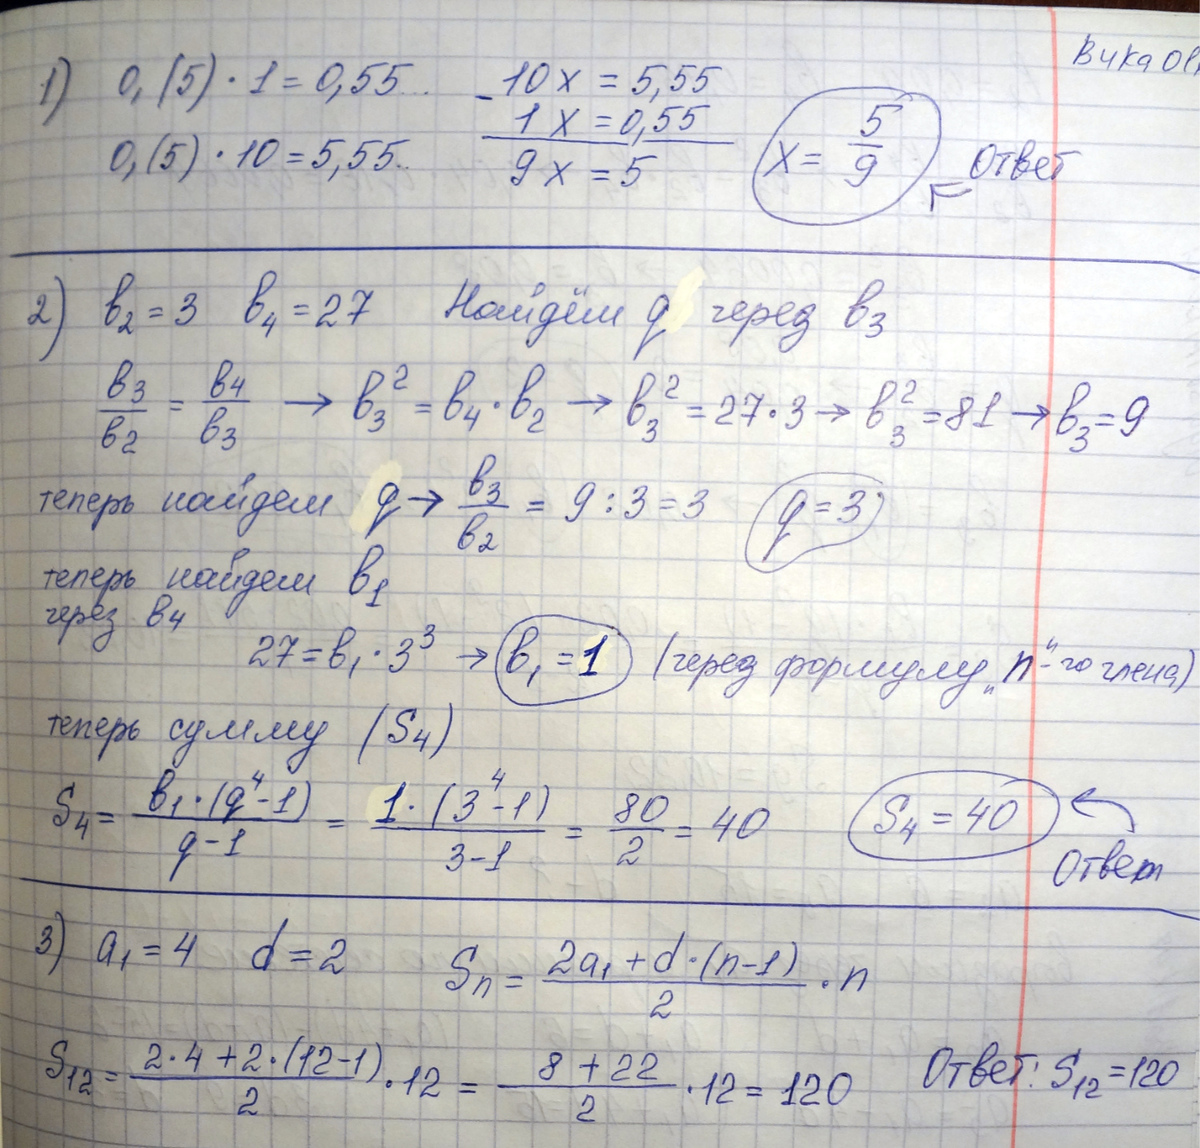 Вика Ол
1) 0,(5) · 1 = 0,55...
0,(5) · 10 = 5,55..
- 10x = 5,55
1x = 0,55
9x = 5
x = 5/9
Ответ
2) в₂ = 3 в₄ = 27 Найдём q через в₃
в₃/в₂ = в₄/в₃ → в₃² = в₄ · в₂ → в₃² = 27 · 3 → в₃² = 81 → в₃ = 9
теперь найдем q → в₃/в₂ = 9 : 3 = 3 q = 3
теперь найдем в₁
через в₄
27 = в₁ · 3³ → в₁ = 1 (через формулу „n"-го члена)
теперь сумму (S₄)
S₄ = в₁ · (q⁴ - 1)/q - 1 = 1 · (3⁴ - 1)/3 - 1 = 80/2 = 40 S₄ = 40
Ответ
3) a₁ = 4 d = 2 Sₙ = 2a₁ + d · (n - 1)/2 · n
S₁₂ = 2 · 4 + 2 · (12 - 1)/2 · 12 = 8 + 22/2 · 12 = 120 Ответ: S₁₂ = 120